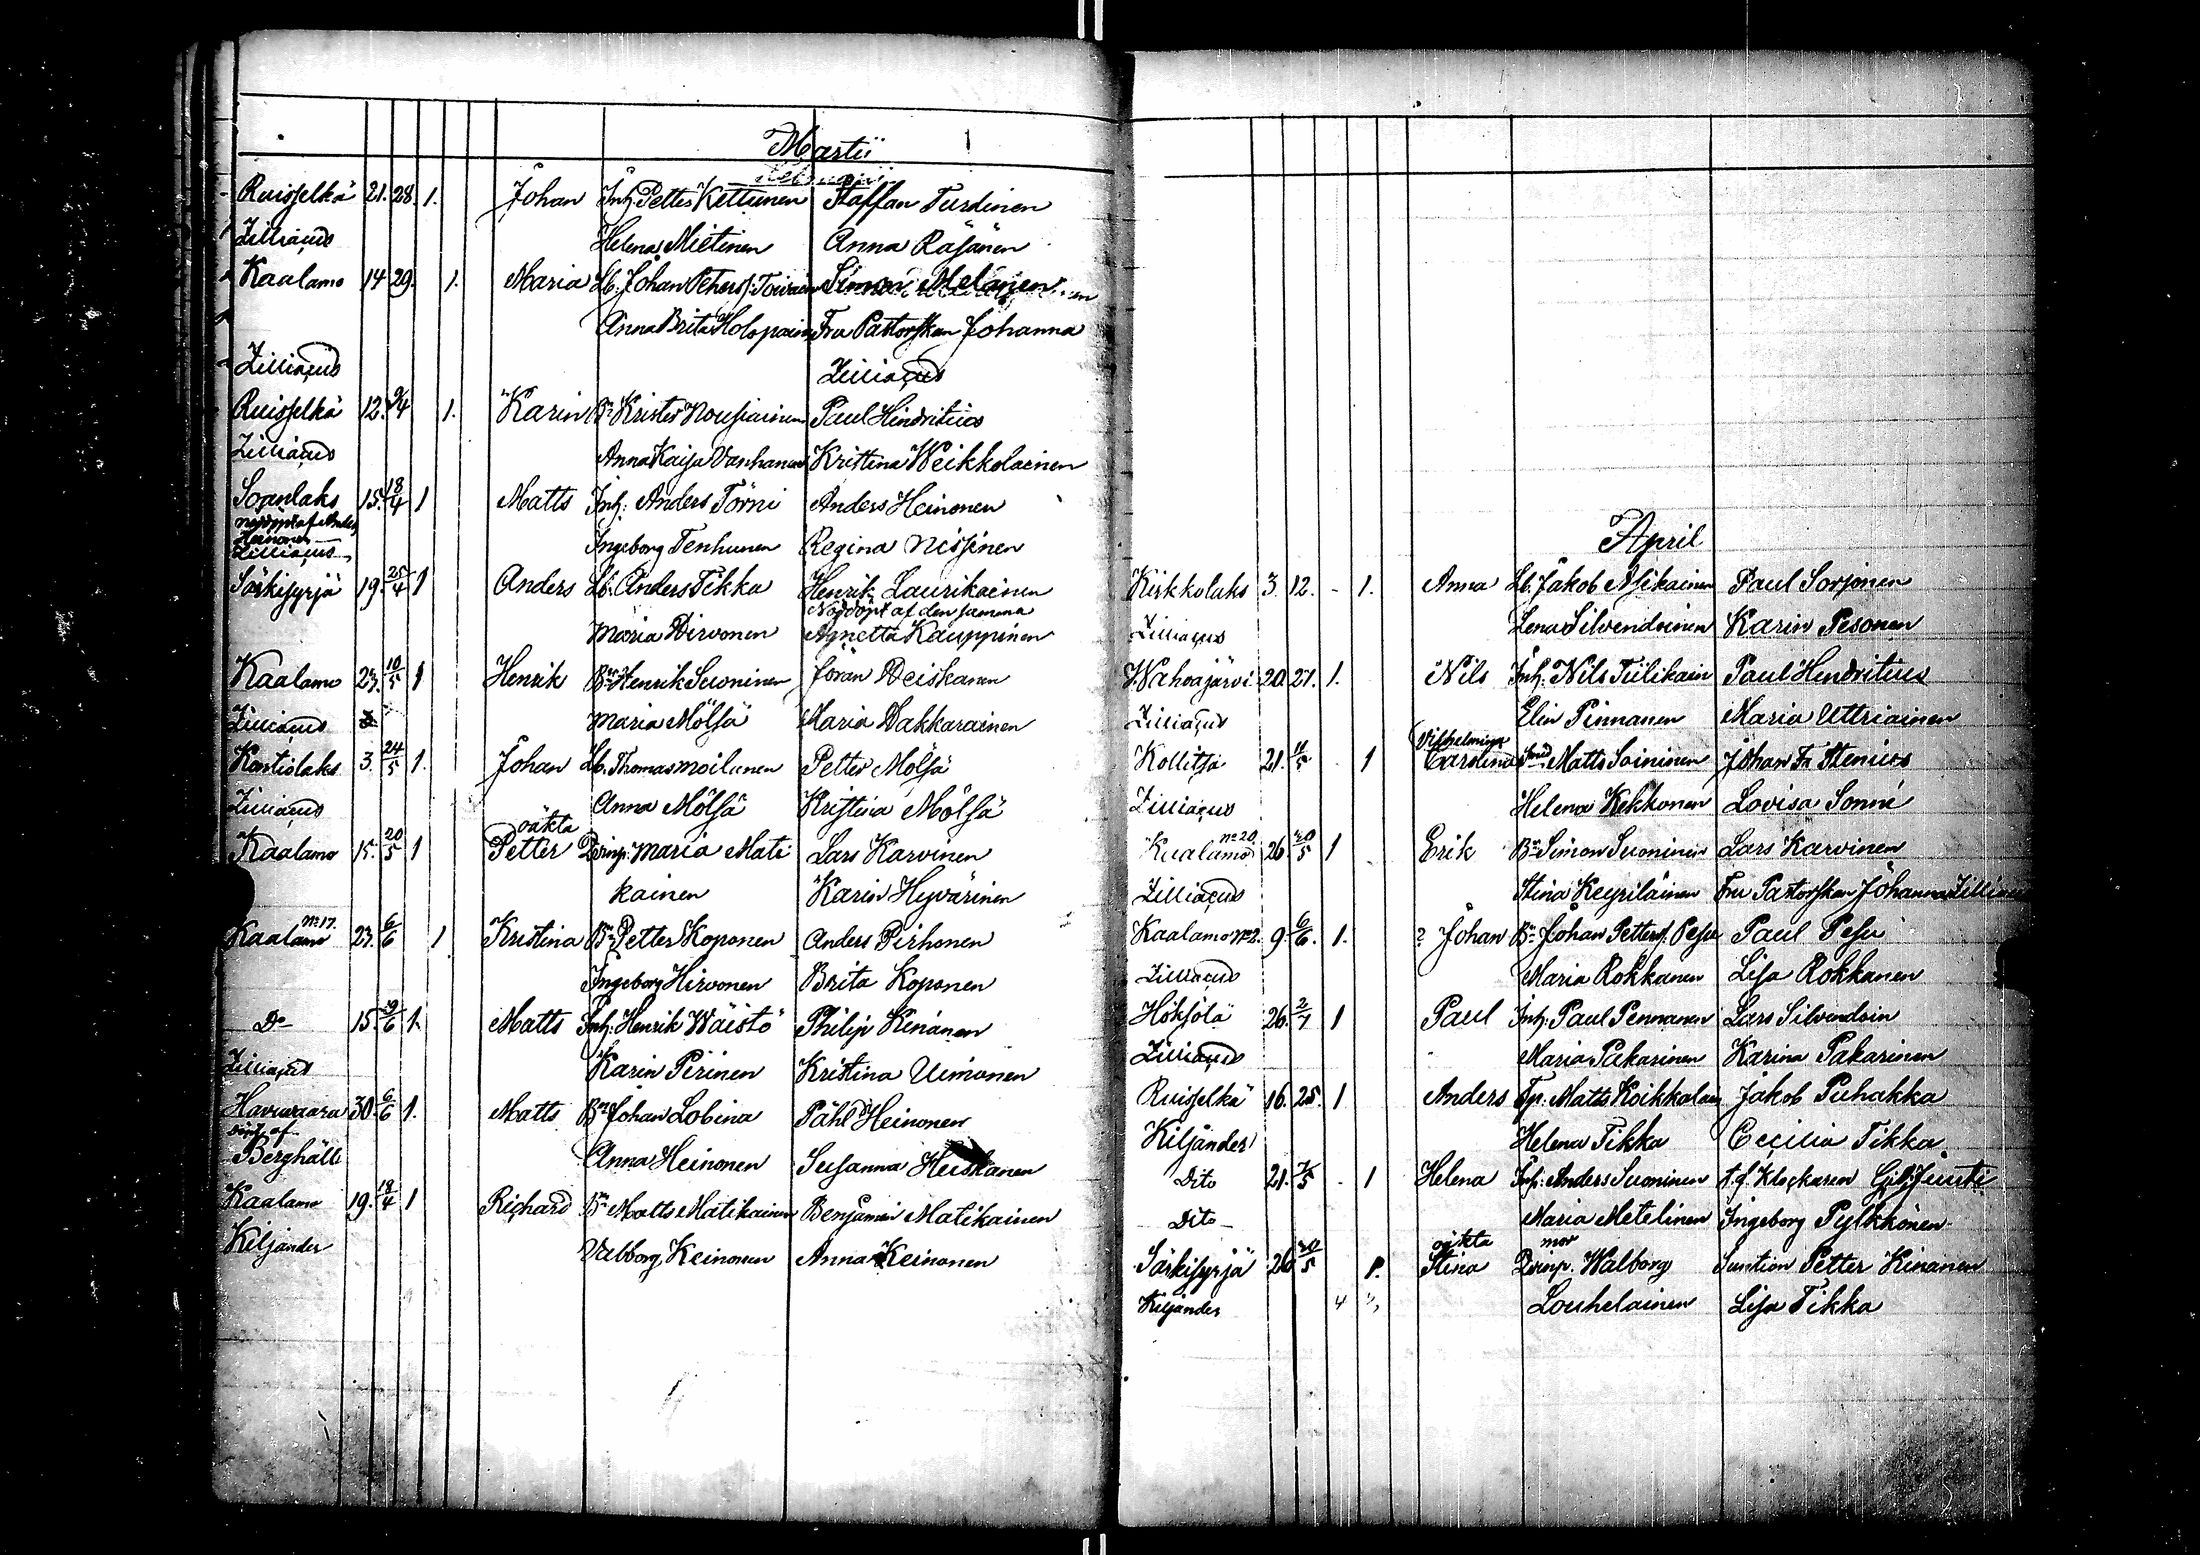 Martii
Ruisselkä 21. 28. 1. Johan Inh. Petter Kettunen Staffan Turdinen
Zilliacus Helena Mietinen Anna Räsänen
Kaalamo 14 29. 1. Maria Lb. Johan Peters: Toivain Simon Melanen
Anna Brita Holopain Fru Pastorskan Johanna
Zilliacus Zilliacus
Ruisselkä 12. 9/4 1. Karin Bn Krister Nousiainen Paul Hindritius
Zilliacus Anna Kaisa Vanhanen Kristina Weikkolainen
Soanlaks 15. 18/4 1 Matts Inh: Anders Törni Anders Heinonen
nöddöpt af Anders
Heinonen
Zilliacus Ingeborg Tenhunen Regina Nissinen
Särkisyrjä 19. 25/4 1 Anders Lb. Anders Tikka Henrik Laurikainen
Nöddöpt af den samma
Maria Hirvonen Agnetta Kauppinen
Kaalamo 23. 10/5 1 Henrik Bn Henrik Suoninen Jöran Heiskanen
Zilliacus Maria Mölsä Maria Hakkarainen
Kontiolaks 3. 24/5 1. Johan Lb. Thomas Moilanen Petter Mölsä
Zilliacus Anna Mölsä Kristina Mölsä
oäkta
Kaalamo 15. 20/5 1 Petter Maria Mati Lars Karvinen
kainen Karin Hyvärinen
No 17.
Kaalamo 23. 6/6 1 Kristina Bn Petter Koponen Anders Pirhonen
Ingeborg Hirvonen Brita Koponen
Do 15. 19/6 1. Matts Inh: Henrik Wäistö Philip Kinanen
Zilliacus Karin Pirinen Kristina Uimonen
Havuvaara 30. 6/6 1. Matts Bn Johan Lobina Påhl Heinonen
döpt af
Berghäll Anna Heinonen Susanna Heiskanen
Kaalamo 19. 18/4 1 Richard Bn Matts Matikainen Benjamin Matikainen
Kiljander Valborg Keinonen Anna Keinonen
April
Kirkkolaks 3. 12. - 1. Anna Lb. Jakob Asikainen Paul Sorjonen
Zilliacus Lena Silvendoinen Karin Pesonen
Wahvajärvi 20. 27. 1. Nils Inh: Nils Tiilikain Paul Hendritius
Zilliacus Elin Pinnanen Maria Uttriainen
Vilhelmina
Kollitsa 21. 11/5 1 Carolina Smed Matts Soininen Johan Fr Stenius
Zilliacus Helena Kekkonen Lovisa Sonni
No 20.
Kaalamo 26 20/5 1 Erik Bn Simon Suoninen Lars Karvinen
Zilliacus Stina Keyriläinen Fru Pastorskan Johanna Zilliacus
Kaalamo No 2. 9. 6/6. 1. ? Johan Bn Johan Petters. Pesu Paul Pesu
Zilliacus Maria Rokkanen Lisa Rokkanen
Höksölä 26. 2/7 1 Paul Inh: Paul Pennanen Lars Silvendoin
Zilliacus Maria Pakarinen Karina Pakarinen
Ruisselkä 16. 25. 1 Anders Matts Koikkalain Jakob Puhakka
Kiljander Helena Tikka Cecilia Tikka
Dito 21. 7/5 - 1 Helena Inh: Anders Suoninen t.f. Klockaren Gab: Juusti
Dito Maria Metelinen Ingeborg Pylkkönen
oäkta mor
Särkisyrjä 26 20/5 1. Stina Walborg Suntion Petter Kinanen
Kiljander 4 Louhelainen Lisa Tikka